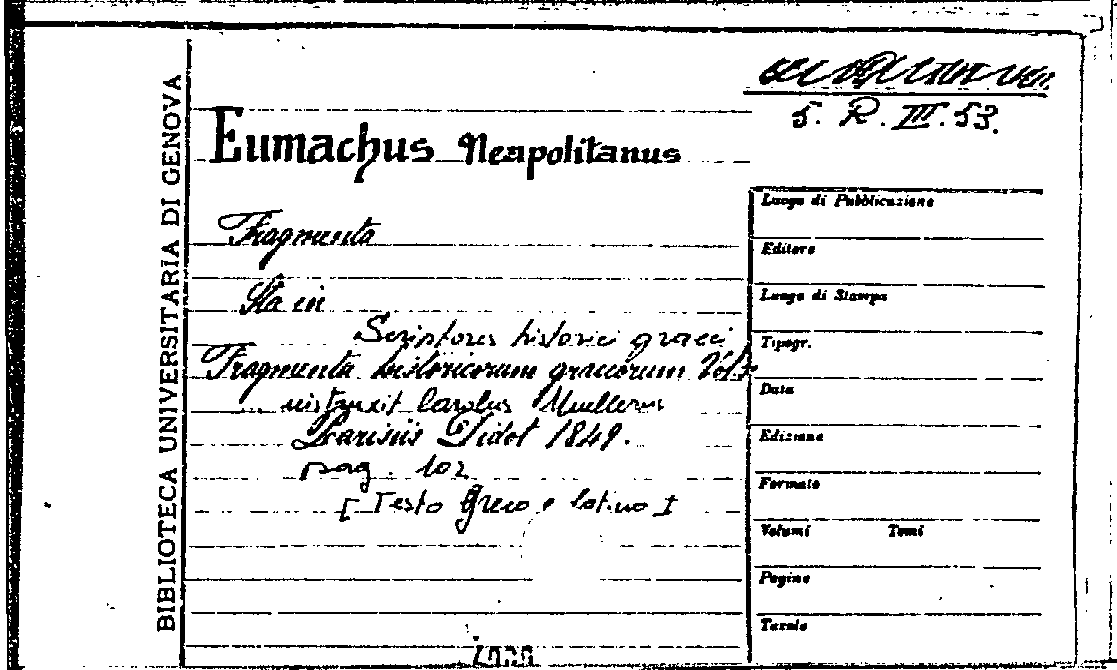 BIBLIOTECA UNIVERSITARIA DI GENOVA
5. R. III. 53.
Eumachus Neapolitanus
Fragmenta
Sta in
Scriptores historici graeci
Fragmenta historicorum graecorum Vol. 3
instruxit Carolus Muellerus
Parisiis Didot 1849.
pag. 102
[Testo Greco e latino]
Luogo di Pubblicazione
Editore
Luogo di Stampa
Tipogr.
Data
Edizione
Formato
Volumi Tomi
Pagine
Tavole